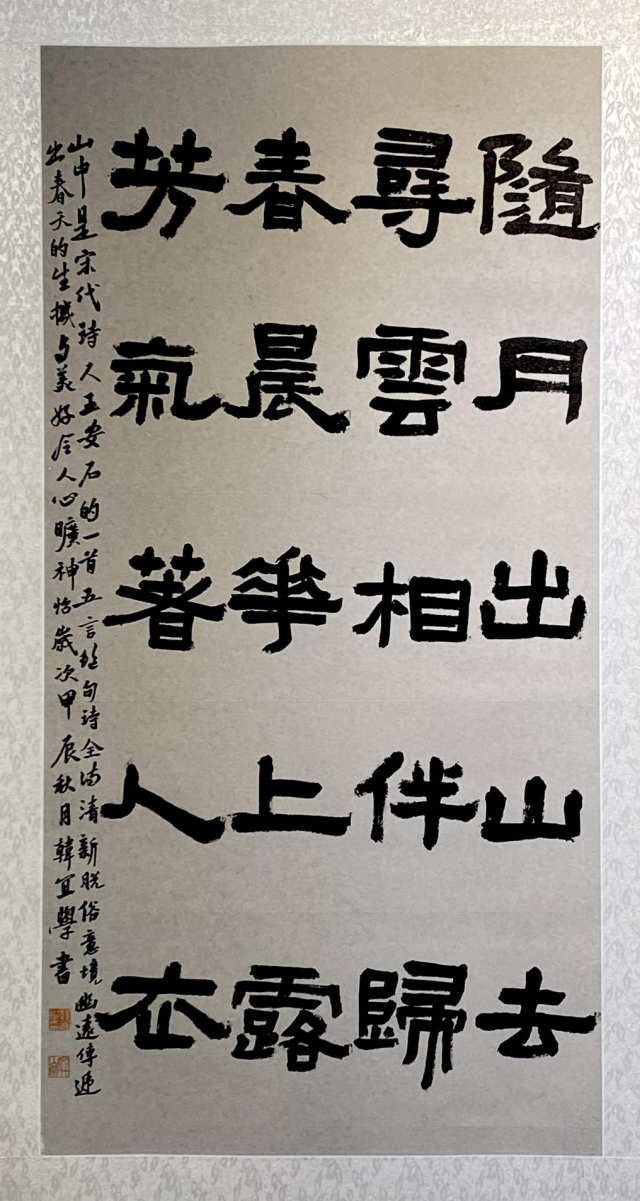 隨月出山去
尋雲相伴歸
春晨華上露
芳氣著人衣
山中是宋代詩人王安石的一首五言絕句詩全詩清新脫俗意境幽遠傳遞
出春天的生機与美好令人心曠神怡歲次甲辰秋月韓宜學書